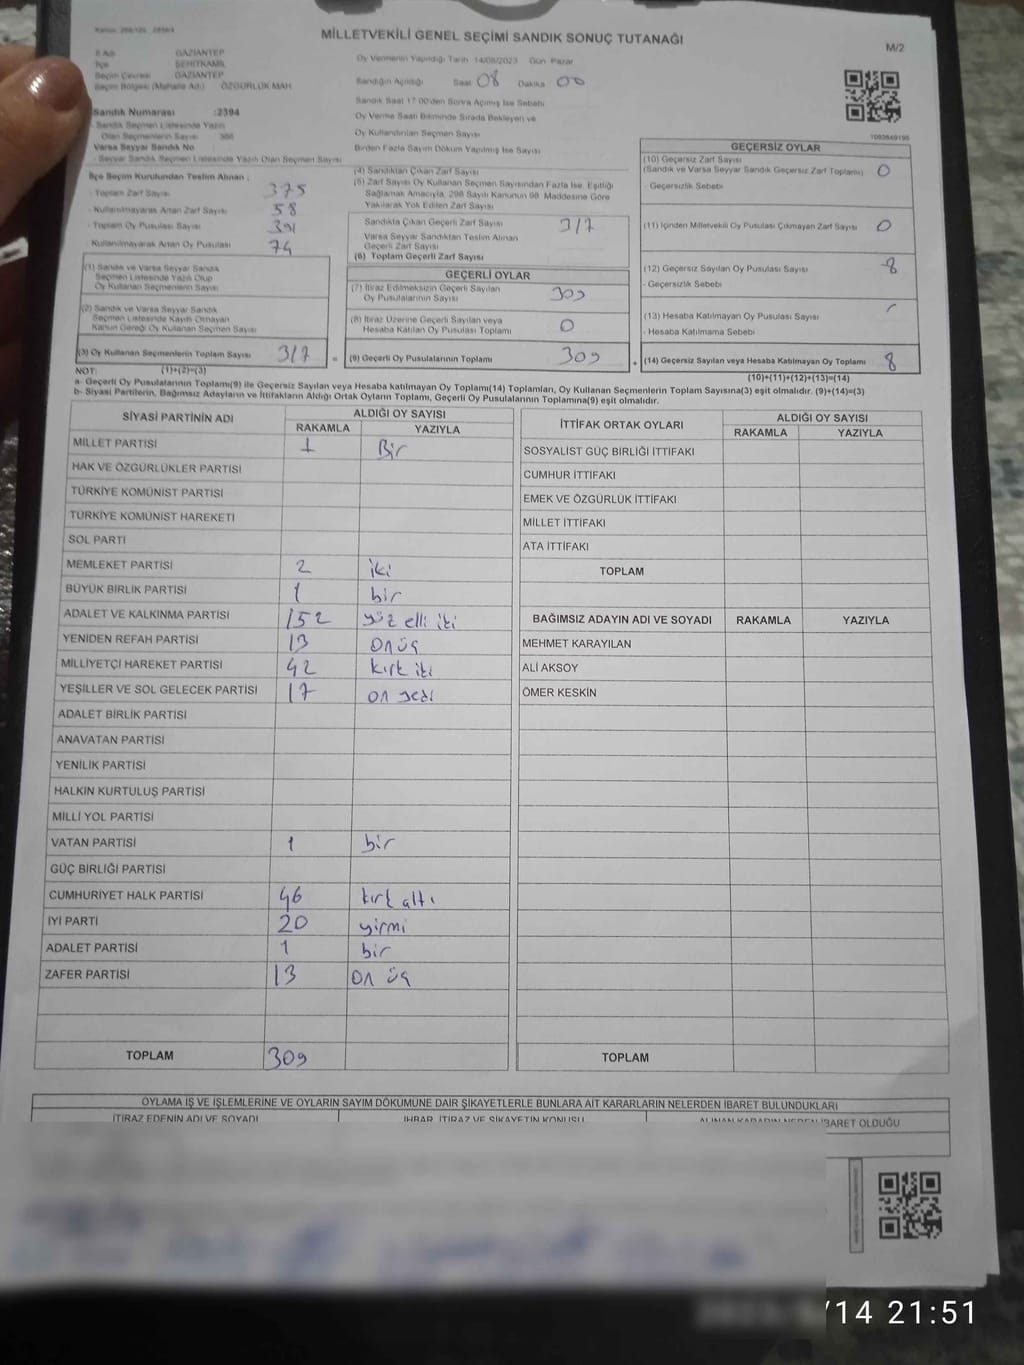 MİLLETVEKİLİ GENEL SEÇİMİ SANDIK SONUÇ TUTANAĞI
M/2
İl Adı GAZİANTEP
İlçe ŞEHİTKAMİL
Seçim Çevresi GAZİANTEP
Seçim Bölgesi (Mahalle Adı) ÖZGÜRLÜK MAH
Oy Vermenin Yapıldığı Tarih 14/05/2023 Gün Pazar
Sandığın Açıldığı Saat 08 Dakika 00
Sandık Saat 17:00'den Sonra Açılmış İse Sebebi
Oy Verme Saati Bitiminde Sırada Bekleyen ve
Oy Kullandırılan Seçmen Sayısı
Birden Fazla Sayım Döküm Yapılmış İse Sayısı
Sandık Numarası :2394
- Sandık Seçmen Listesinde Yazılı
Olan Seçmenlerin Sayısı
Varsa Seyyar Sandık No
- Seyyar Sandık Seçmen Listesinde Yazılı Olan Seçmen Sayısı
İlçe Seçim Kurulundan Teslim Alınan ;
- Toplam Zarf Sayısı 375
- Kullanılmayarak Artan Zarf Sayısı 58
- Toplam Oy Pusulası Sayısı 391
- Kullanılmayarak Artan Oy Pusulası 74
(1) Sandık ve Varsa Seyyar Sandık
Seçmen Listesinde Yazılı Olup
Oy Kullanan Seçmenlerin Sayısı
(2) Sandık ve Varsa Seyyar Sandık
Seçmen Listesinde Kayıtlı Olmayan
Kanun Gereği Oy Kullanan Seçmen Sayısı
(3) Oy Kullanan Seçmenlerin Toplam Sayısı 317
(4) Sandıktan Çıkan Zarf Sayısı
(5) Zarf Sayısı Oy Kullanan Seçmen Sayısından Fazla İse, Eşitliği
Sağlamak Amacıyla, 298 Sayılı Kanunun 98. Maddesine Göre
Yakılarak Yok Edilen Zarf Sayısı
Sandıkta Çıkan Geçerli Zarf Sayısı 317
Varsa Seyyar Sandıktan Teslim Alınan
Geçerli Zarf Sayısı
(6) Toplam Geçerli Zarf Sayısı
GEÇERLİ OYLAR
(7) İtiraz Edilmeksizin Geçerli Sayılan
Oy Pusulalarının Sayısı 309
(8) İtiraz Üzerine Geçerli Sayılan veya
Hesaba Katılan Oy Pusulası Toplamı 0
= (9) Geçerli Oy Pusulalarının Toplamı 309 +
GEÇERSİZ OYLAR
(10) Geçersiz Zarf Sayısı
(Sandık ve Varsa Seyyar Sandık Geçersiz Zarf Toplamı) 0
- Geçersizlik Sebebi
(11) İçinden Milletvekili Oy Pusulası Çıkmayan Zarf Sayısı 0
(12) Geçersiz Sayılan Oy Pusulası Sayısı 8
- Geçersizlik Sebebi
(13) Hesaba Katılmayan Oy Pusulası Sayısı
- Hesaba Katılmama Sebebi
(14) Geçersiz Sayılan veya Hesaba Katılmayan Oy Toplamı 8
NOT: (1)+(2)=(3) (10)+(11)+(12)+(13)=(14)
a- Geçerli Oy Pusulalarının Toplamı(9) ile Geçersiz Sayılan veya Hesaba Katılmayan Oy Toplamı(14) Toplamları, Oy Kullanan Seçmenlerin Toplam Sayısına(3) eşit olmalıdır. (9)+(14)=(3)
b- Siyasi Partilerin, Bağımsız Adayların ve İttifakların Aldığı Ortak Oyların Toplamı, Geçerli Oy Pusulalarının Toplamına(9) eşit olmalıdır.
SİYASİ PARTİNİN ADI ALDIĞI OY SAYISI
RAKAMLA YAZIYLA
MİLLET PARTİSİ 1 Bir
HAK VE ÖZGÜRLÜKLER PARTİSİ
TÜRKİYE KOMÜNİST PARTİSİ
TÜRKİYE KOMÜNİST HAREKETİ
SOL PARTİ
MEMLEKET PARTİSİ 2 iki
BÜYÜK BİRLİK PARTİSİ 1 bir
ADALET VE KALKINMA PARTİSİ 152 yüz elli iki
YENİDEN REFAH PARTİSİ 13 on üç
MİLLİYETÇİ HAREKET PARTİSİ 42 kırk iki
YEŞİLLER VE SOL GELECEK PARTİSİ 17 on yedi
ADALET BİRLİK PARTİSİ
ANAVATAN PARTİSİ
YENİLİK PARTİSİ
HALKIN KURTULUŞ PARTİSİ
MİLLİ YOL PARTİSİ
VATAN PARTİSİ 1 bir
GÜÇ BİRLİĞİ PARTİSİ
CUMHURİYET HALK PARTİSİ 46 kırk altı
İYİ PARTİ 20 yirmi
ADALET PARTİSİ 1 bir
ZAFER PARTİSİ 13 on üç
TOPLAM 309
İTTİFAK ORTAK OYLARI ALDIĞI OY SAYISI
RAKAMLA YAZIYLA
SOSYALİST GÜÇ BİRLİĞİ İTTİFAKI
CUMHUR İTTİFAKI
EMEK VE ÖZGÜRLÜK İTTİFAKI
MİLLET İTTİFAKI
ATA İTTİFAKI
TOPLAM
BAĞIMSIZ ADAYIN ADI VE SOYADI RAKAMLA YAZIYLA
MEHMET KARAYILAN
ALİ AKSOY
ÖMER KESKİN
TOPLAM
OYLAMA İŞ VE İŞLEMLERİNE VE OYLARIN SAYIM DÖKÜMÜNE DAİR ŞİKAYETLERLE BUNLARA AİT KARARLARIN NELERDEN İBARET BULUNDUKLARI
İTİRAZ EDENİN ADI VE SOYADI İHBAR, İTİRAZ VE ŞİKAYETİN KONUSU ALINAN KARARIN NEDEN İBARET OLDUĞU
/14 21:51